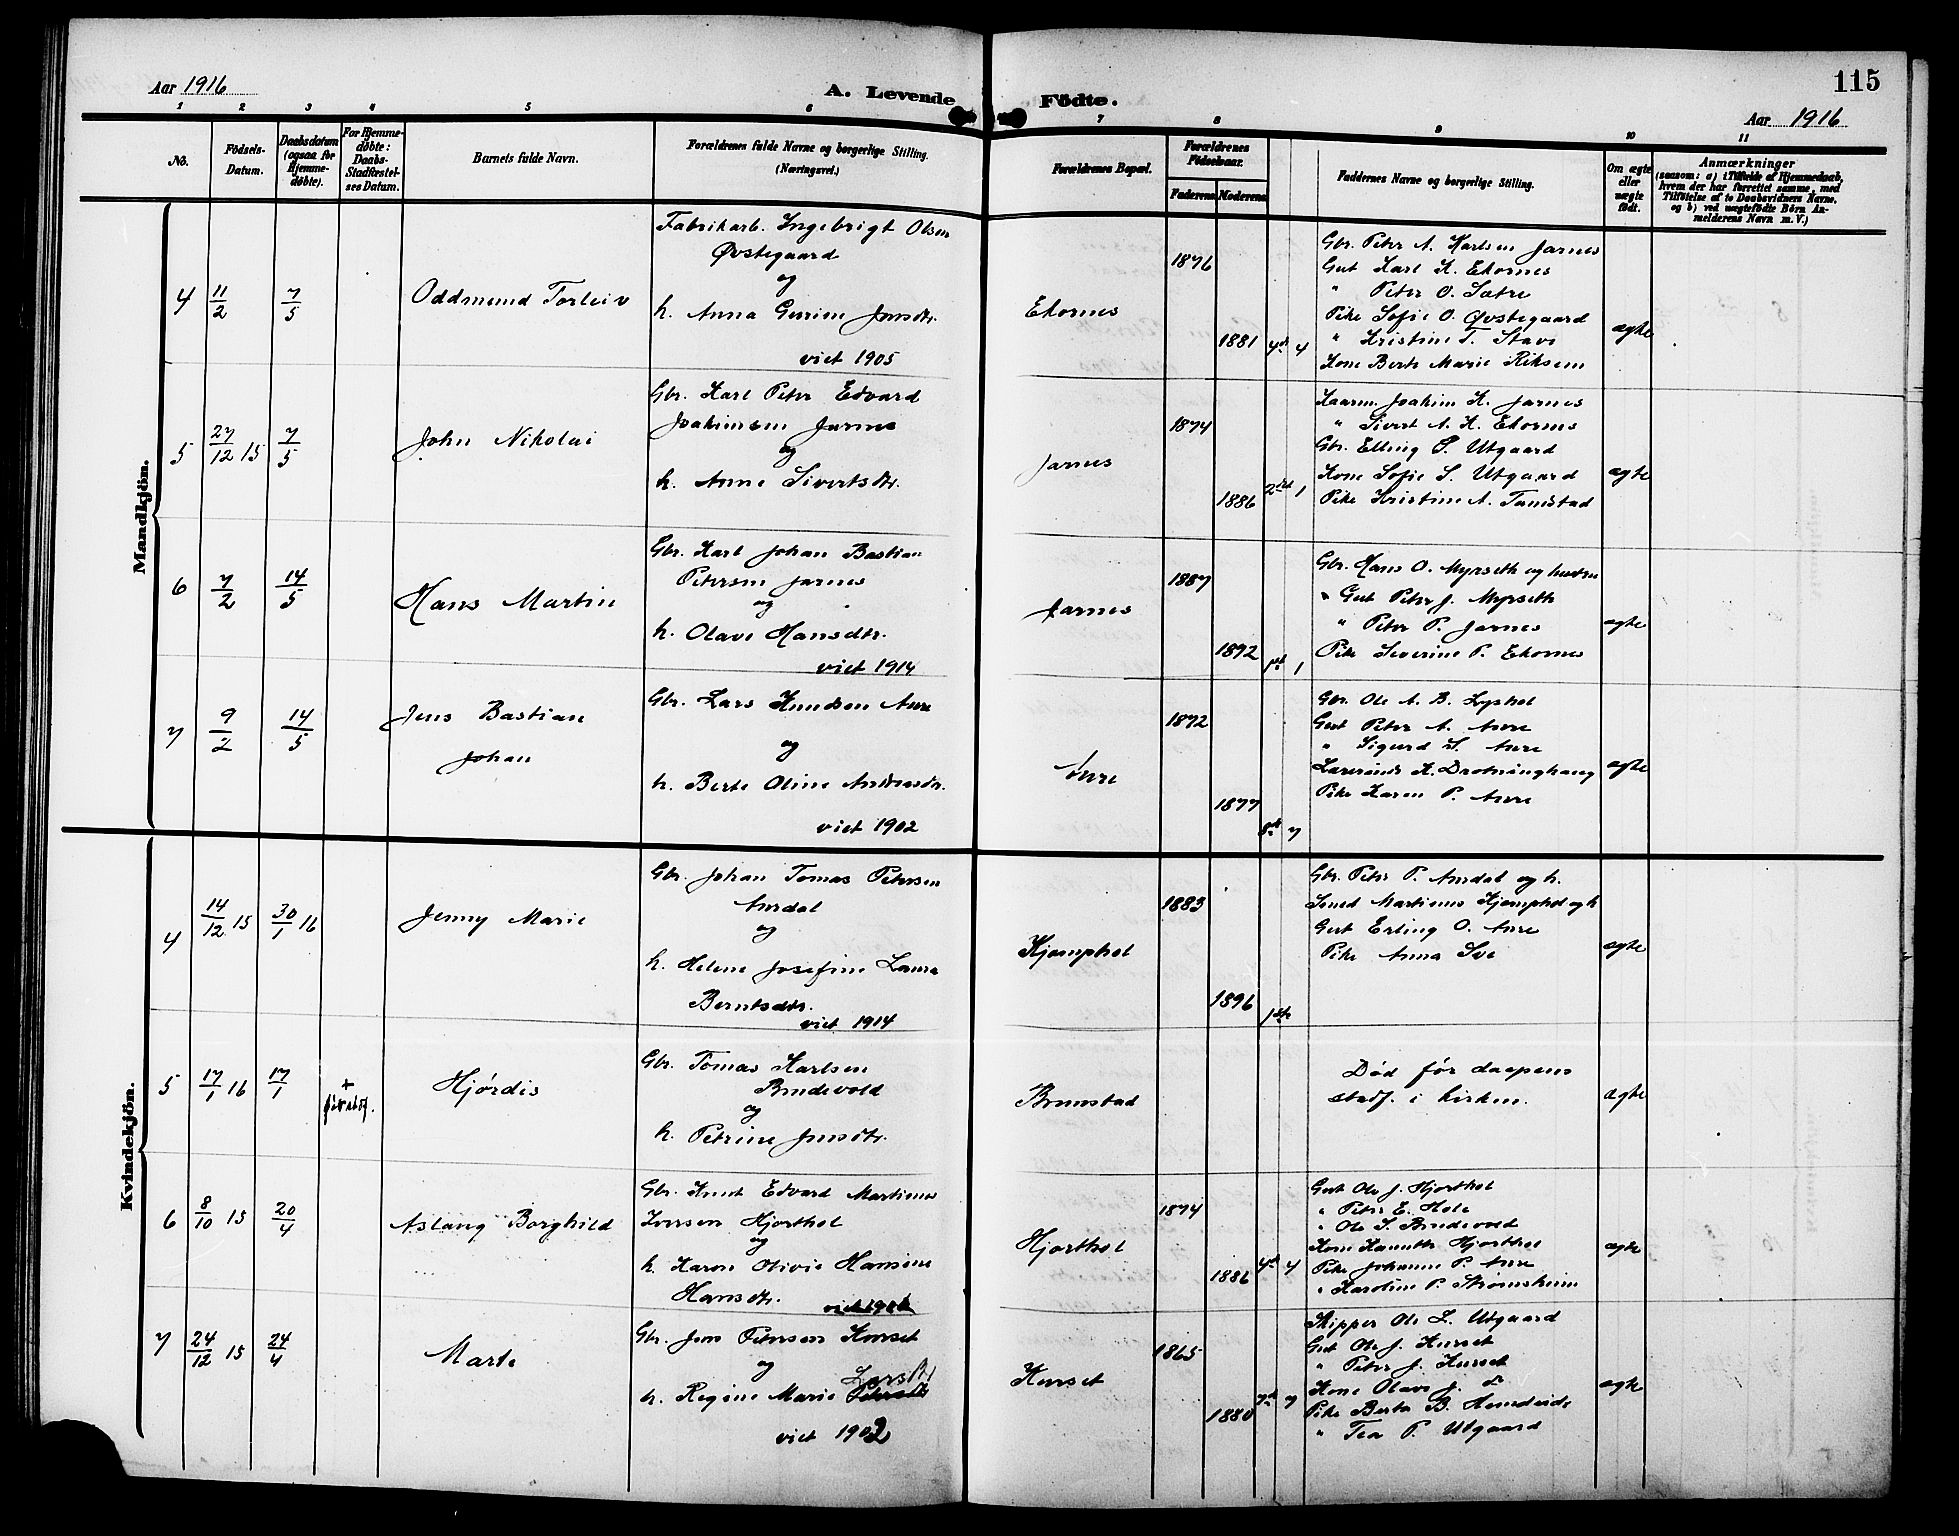 Aar 1916
A. Levende Födte.
115
Aar 1916
1 2 3 4 5 6 7 8 9 10 11
No.
Födsels-
Datum.
Daabsdatum
(ogsaa for
Hjemme-
döbte).
For Hjemme-
döbte:
Daabs-
Stadfæstel-
ses Datum.
Barnets fulde Navn.
Forældrenes fulde Navne og borgerlige Stilling.
(Næringsvei.)
Forældrenes Bopæl.
Forældrenes
Födselsaar.
Faderens Moderens
Faddernes Navne og borgerlige Stilling.
Om ægte
eller
uægte
födt.
Anmærkninger
(saasom: a) i Tilfælde af Hjemmedaab,
hvem der har forrettet samme, med
Tilföielse af to Daabsvidners Navne,
og b) ved uægtefödte Börn An-
melderens Navn m. V.)
Mandkjön.
4
11/2
7/5
Oddmund Torleiv
Fabrikarb. Ingebrigt Olsen
Øvstegaard
og
h. Anna Gurine Jensdtr.
viet 1905
Ekornes
1876
1881
4de 4
Gbr. Peter A. Karlsen Jarnes
Gut Karl K. Ekornes
" Peter O. Sætre
Pike Sofie O. Øvstegaard
" Kristine T. Stave
Kone Berte Marie Riksem
ægte
5
27/12 15
7/5
John Nikolai
Gbr. Karl Peter Edvard
Joakimsen Jarnes
og
h. Anne Sivertsdtr.
Jarnes
1874
1886
2det 1
Kaarm. Joakim K. Jarnes
" Sivert A. K. Ekornes
Gbr. Elling S. Utgaard
Kone Sofie S. Utgaard
Pike Kristine A. Tandstad
ægte
6
7/2
14/5
Hans Martin
Gbr. Karl Johan Bastian
Petersen Jarnes
og
h. Olave Hansdtr.
viet 1914
Jarnes
1887
1892
1st 1
Gbr. Hans O. Myrseth og hustru
" Gut Peter J. Myrseth
" Peter P. Jarnes
Pike Severine P. Ekornes
ægte
7
9/2
14/5
Jens Bastian
Johan
Gbr. Lars Knudsen Aure
og
h. Berte Oline Andreasdtr.
viet 1902
Aure
1872
1877
8de 7
Gbr. Ole A. B. Lyshol
Gut Peter A. Aure
" Sigurd L. Aure
Lærerinde K. Drotninghaug
Pike Karen P. Aure
ægte
Kvindekjön.
4
14/12 15
30/1 16
Jenny Marie
Gbr. Johan Tomas Petersen
Aurdal
og
h. Helene Josefine Laura
Berntsdtr.
viet 1914
Kjemphol
1883
1896
1ste
Gbr. Peter P. Aurdal og h.
Smed Martinus Kjemphol og h
Gut Erling O. Aure
Pike Anna Sve
ægte
5
17/1 16
17/1
+
før stadf.
Hjørdis
Gbr. Tomas Karlsen
Brudevold
og
h. Petrine Jensdtr.
Brunstad
Død før daapens
stadf. i kirken.
ægte
6
8/10 15
20/4
Aslaug Borghild
Gbr. Knut Edvard Martinus
Iversen Hjorthol
og
h. Karen Olivie Hansine
Hansdtr.
viet 1906
Hjorthol
1874
1886
4de 4
Gut Ole J. Hjorthol
" Peter E. Hole
" Ole S. Brudevold
Kone Hjorthol
Pike Johanne P. Aure
" Karoline P. Strømsheim
ægte
7
24/12 15
24/4
Marte
Gbr. Jon Petersen Kurset
og
h. Regine Marie Petersdtr
Larsdtr
viet 1902
Kurset
1865
1880
7de 7
Skipper Ole L. Utgaard
Gut Ole J. Kurset
" Peter J. Kurset
Kone Olave J. do
Pike Berta B. Hundeide
" Tea P. Utgaard
ægte